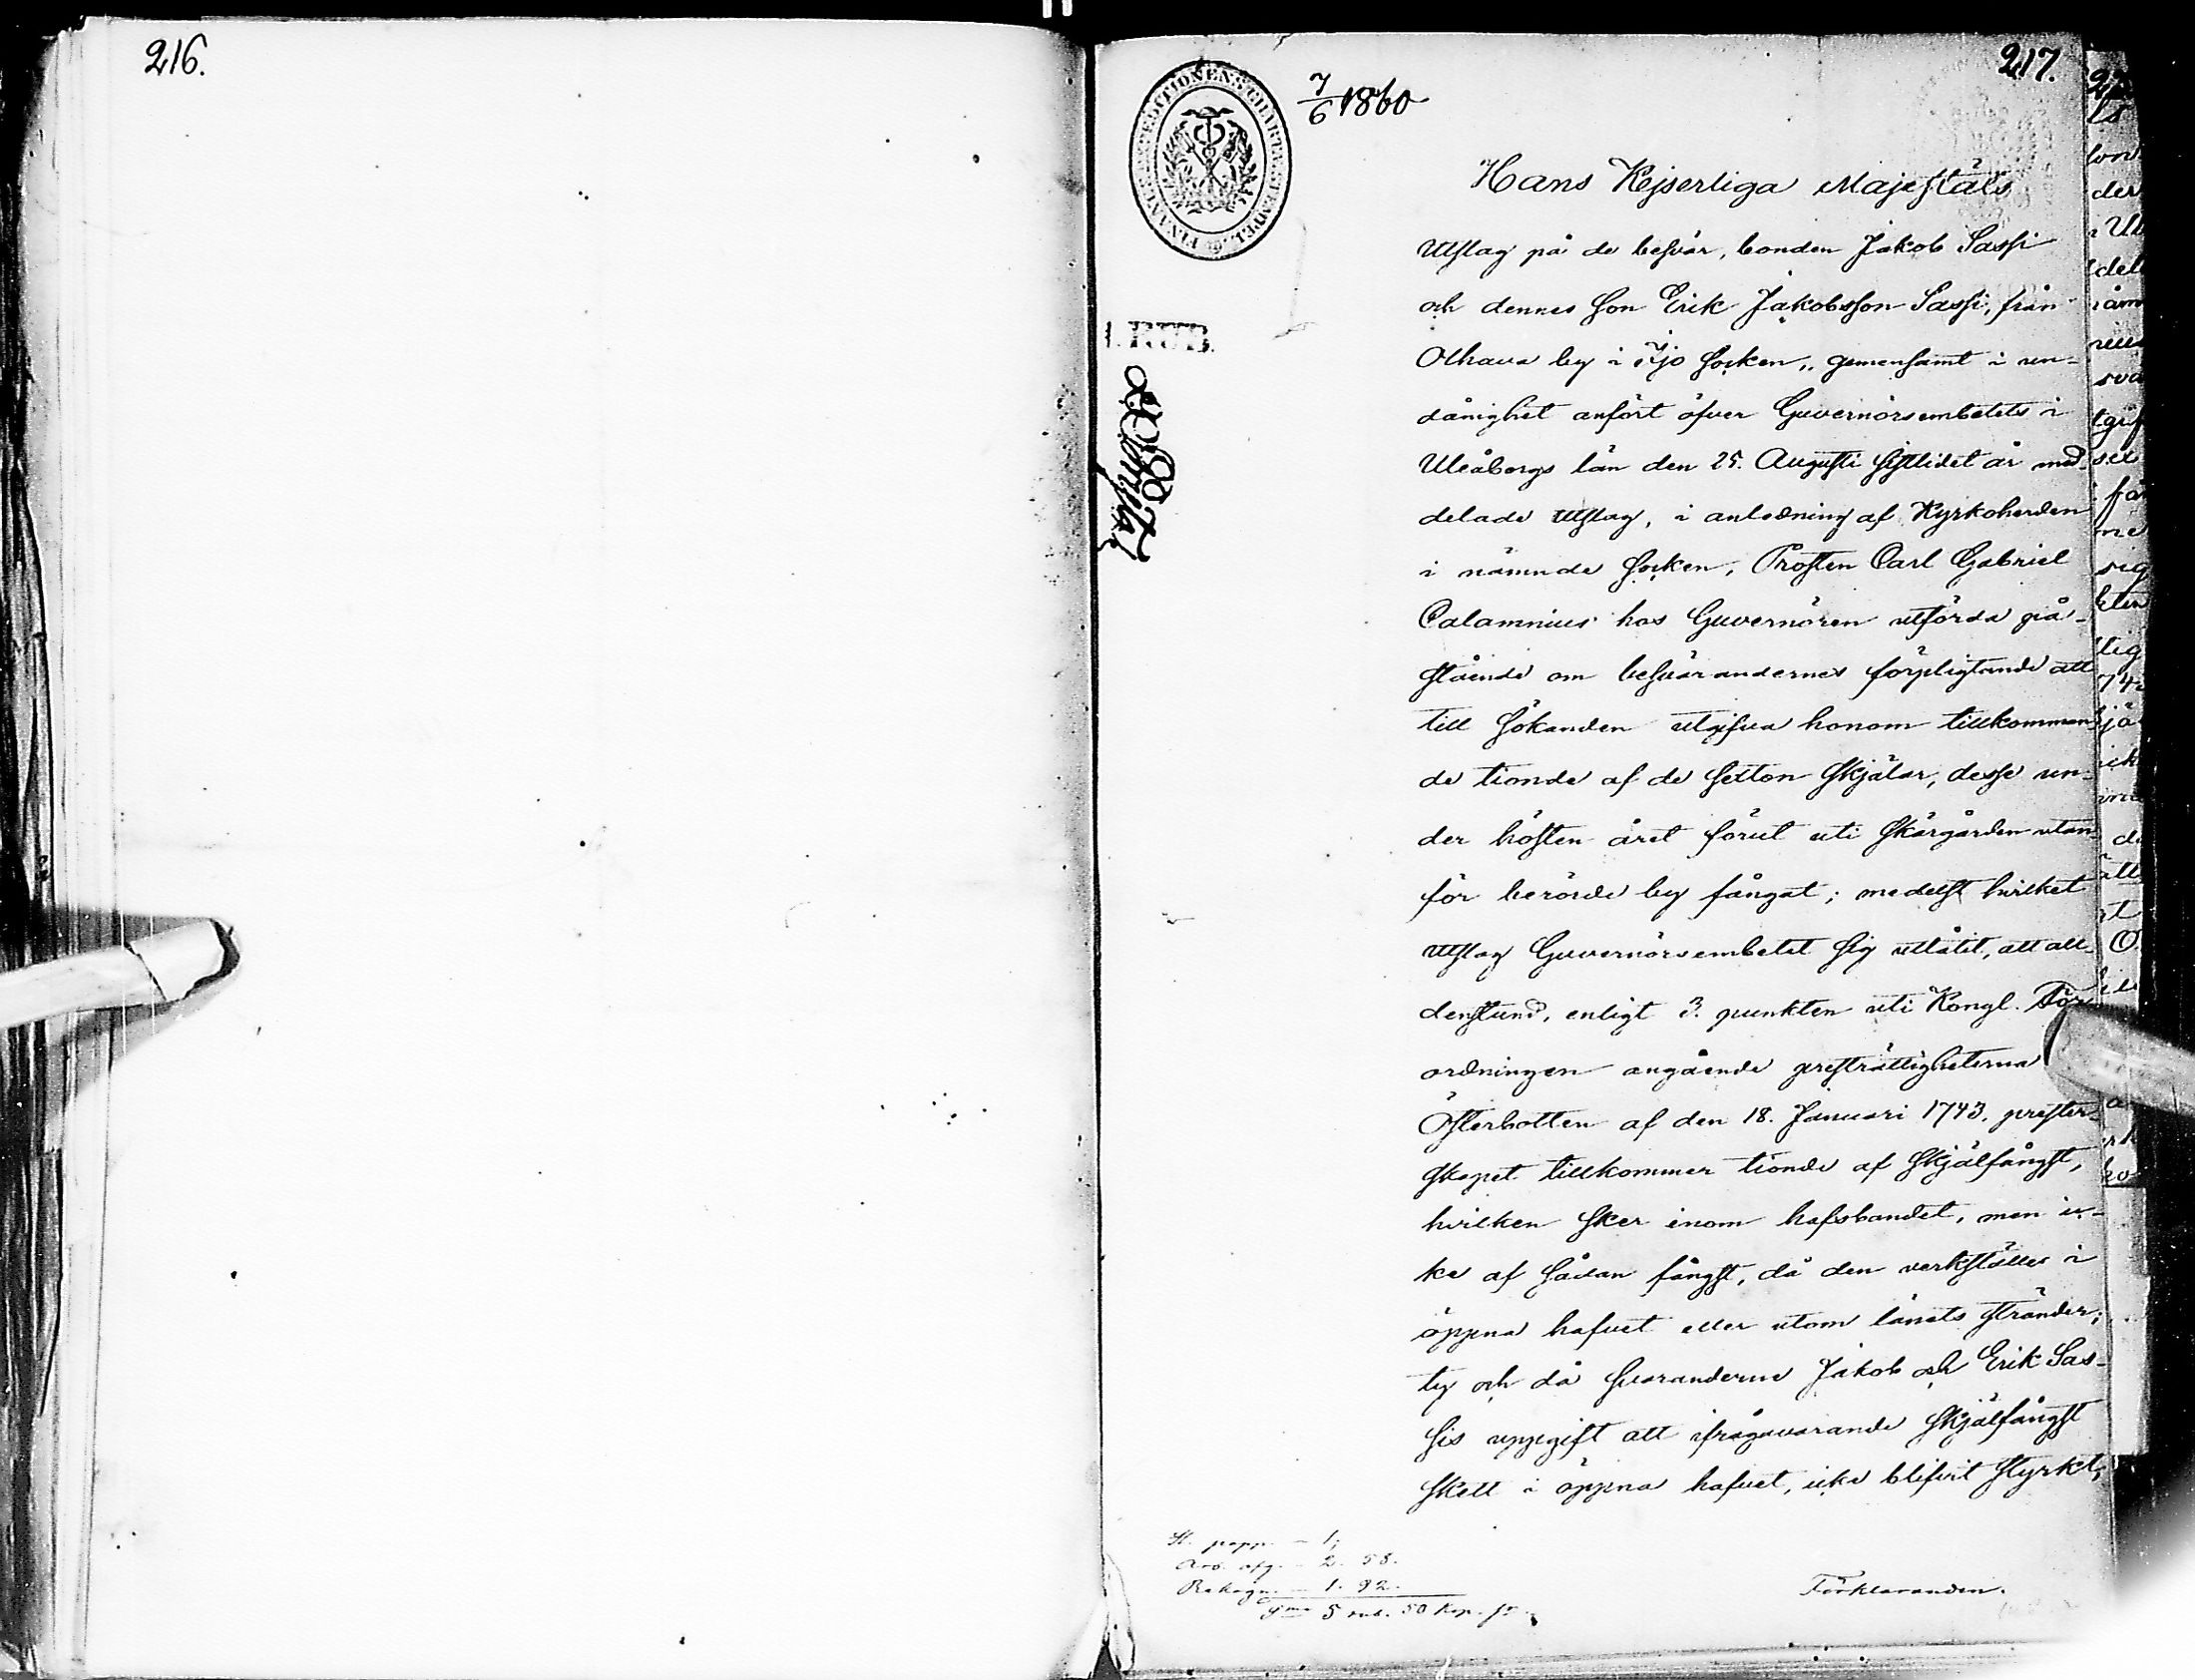 216.
217.
7/6 1860
Hans Kejserliga Majestäts
Utslag på de besvär, bonden Jakob Sassi
och dennes son Erik Jakobsson Sassi, från
Olhava by i Ijo socken, gemensamt i un-
dånighet anfört öfver Guvernörsembetets i
Uleåborgs län den 25. Augusti sistlidet år med-
delade utslag, i anledning af Kyrkoherden
i nämnde socken, Prosten Carl Gabriel
Calamnius hos Guvernören utförda på-
stående om besvärandernes förpligtande att
till sökanden utgifva honom tillkomman-
de tionde af de sexton skjälar, desse un-
der hösten året förut uti skärgården utan-
för berörde by fångat; medelst hvilket
utslag Guvernörsembetet sig utlåtit, att all-
denstund, enligt 3. punkten uti Kongl. För
ordningen angående presträttigheterna
Österbotten af den 18. Januari 1743, prester-
skapet tillkommer tionde af skjälfångst,
hvilken sker inom hafsbandet, men ic-
ke af sådan fångst, då den verkställes i
öppna hafvet eller utom länets stränder;
ty och då svaranderne Jakob och Erik Sas-
sis uppgift att ifrågavarande skjälfångst
skett i öppna hafvet, icke blifvit styrkt,
Förklaranden.
St. papp. - 1,
Arb. afg. - 2. 58.
- 1. 92.
5 rub. 50 kop. sr